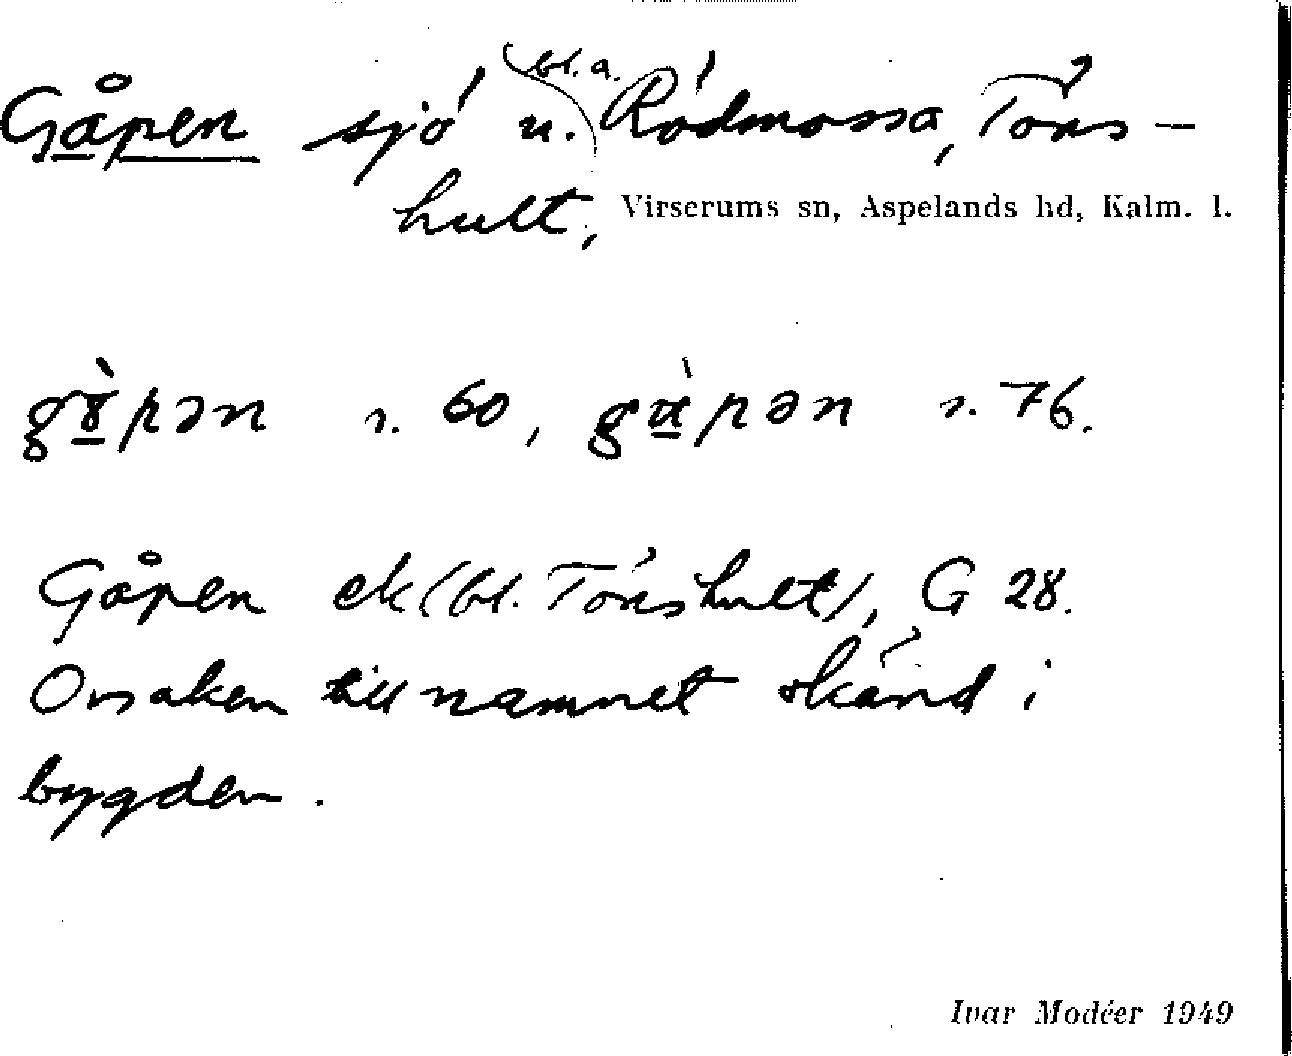 Gåpen sjö u. bl. a. Rödmossa, Töns-
hult, Virserums sn, Aspelands hd, Kalm. l.
s. 60, s. 76.
Gåpen ek (bl. Tönshult), G 28.
Orsaken till namnet okänd i
bygden.
Ivar Modéer 1949